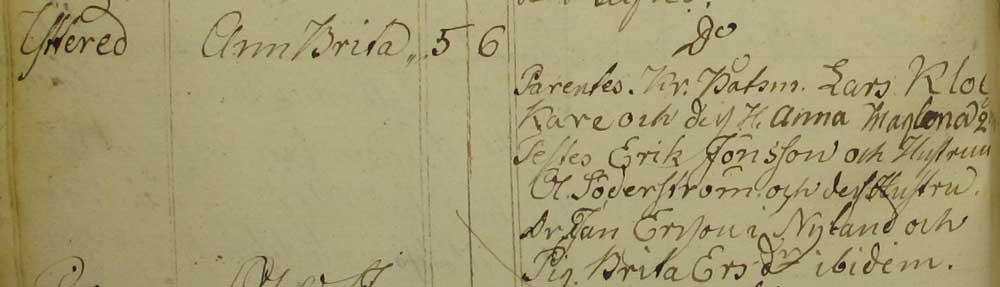 Ytttered Ann Brita „ 5 6 Do
Parentes. Kr. Båtsm. Lars Kloc
Kare och deß H. Anna Maglena
Testes Erik Jönsson och Hustru
O. Söderström och deß Hustru.
Dr. Jan Ersson i Nyland och
Pig. Brita Ersdr ibidem.